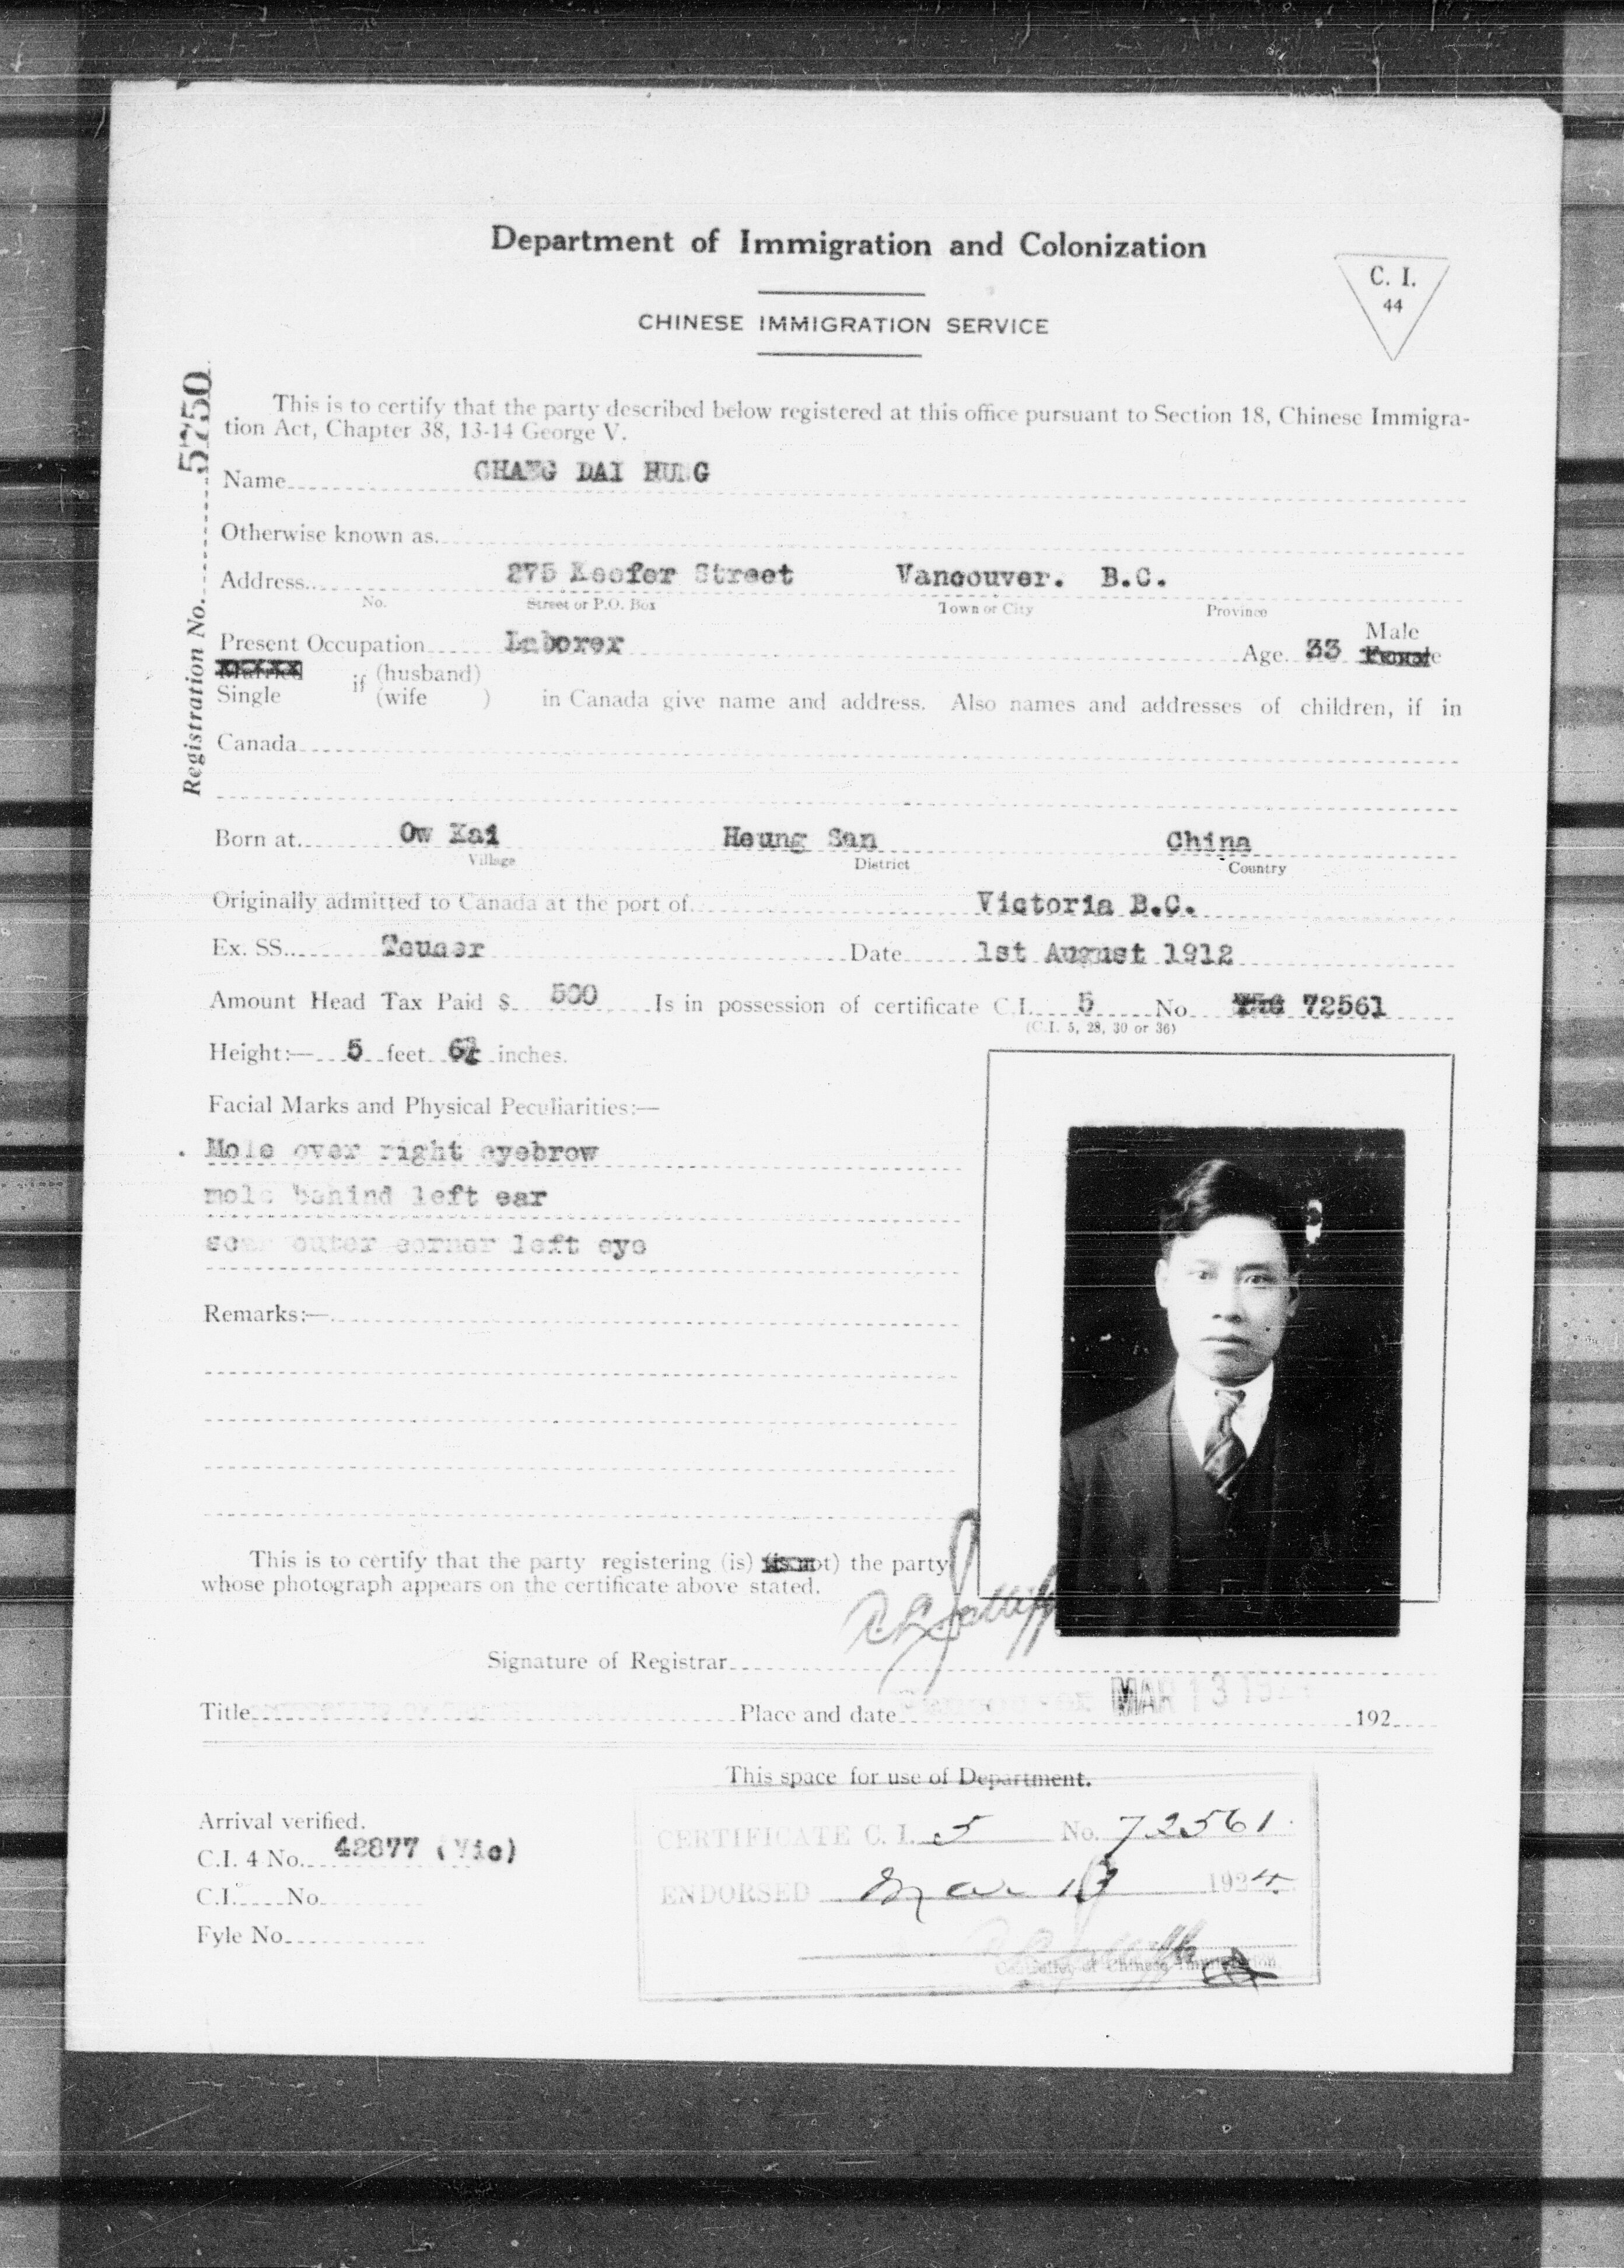 Department of Immigration and Colonization
C. I.
44
CHINESE IMMIGRATION SERVICE
Registration No. 5750
This is to certify that the party described below registered at this office pursuant to Section 18, Chinese Immigra-
tion Act, Chapter 38, 13-14 George V.
Name CHANG DAI HUNG
Otherwise known as.
Address 275 Keefer Street Vancouver. B.C.
No. Street or P.O. Box Town or City Province
Present Occupation Laborer Age 33 Male Female
Married
Single if (husband) (wife ) in Canada give name and address. Also names and addresses of children, if in
Canada
Born at Ow Kai Heung San China
Village District Country
Originally admitted to Canada at the port of Victoria B.C.
Ex. SS. Teucer Date 1st August 1912
Amount Head Tax Paid $ 500 Is in possession of certificate C.I. 5 No 72561
(C.I. 5, 28, 30 or 36)
Height:— 5 feet inches.
Facial Marks and Physical Peculiarities:—
Mole over right eyebrow
mole behind left ear
scar outer corner left eye
Remarks:—
This is to certify that the party registering (is) (is not) the party
whose photograph appears on the certificate above stated.
Signature of Registrar
Title Place and date MAR 13 192
192
This space for use of Department.
Arrival verified.
C.I. 4 No. 42877 (Vic)
C.I. No.
Fyle No.
CERTIFICATE C. I. 5 No. 72561
ENDORSED Mar 13 1924
Controller of Chinese Immigration